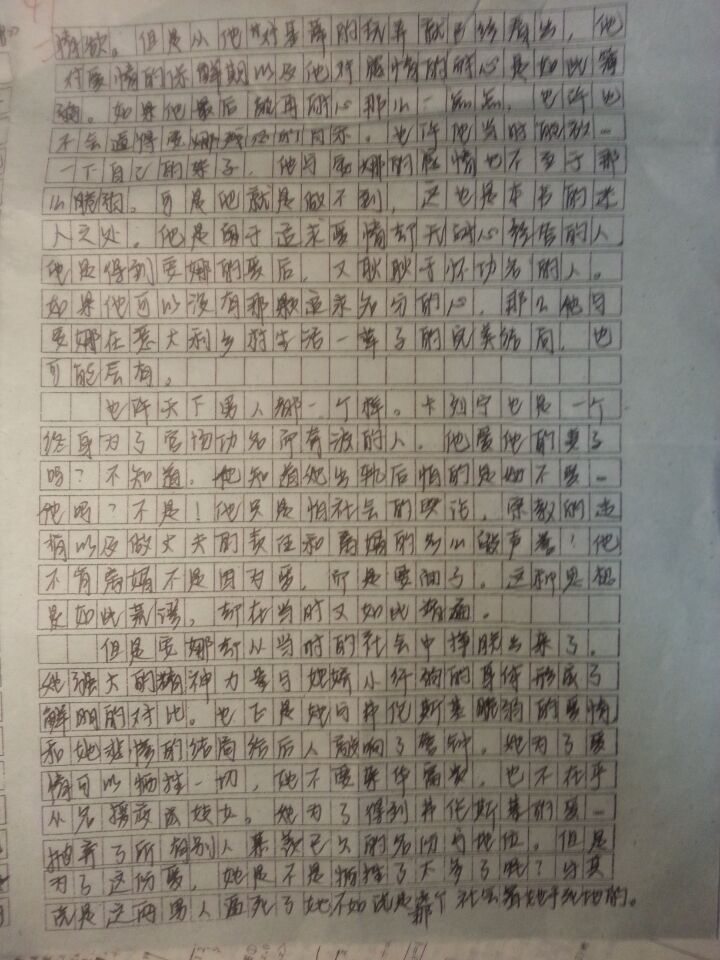 情欲。但是从他对基蒂的抛弃就已经看出，他
对爱情的保鲜期以及他对感情的耐心是如此薄
弱。如果他最后能再耐心那么一点点，也许也
不会逼得安娜
一下自己的妻子，他与安娜的感情也不至于那
么脆弱。可是他就是做不到，这也是本书的迷
人之处。他是勇于追求爱情却无耐心经营的人
他是得到安娜的爱后，又耿耿于怀功名的人。
如果他可以没有那颗追求名分的心，那么他与
安娜在意大利乡村生活一辈子的完美结局，也
可能会有。
也许天下男人都一个样。卡列宁也是一个
终身为了官场功名而奔波的人。他爱他的妻子
吗？不知道。他知道她出轨后怕的是她不爱
他吗？不是！他只是怕社会的舆论，宗教的
以及做丈夫的责任和离婚的名声！他
不肯离婚不是因为爱，而是要面子。这种思想
是如此荒谬，却在当时又如此普遍。
但是安娜却从当时的社会中挣脱出来了。
她强大的精神力量与她娇小纤弱的身体形成了
鲜明的对比。也正是她与井伦斯基脆弱的爱情
和她悲惨的结局给后人敲响了警钟。她为了爱
情可以牺牲一切，她不要荣华富贵，也不在乎
从名援变为妓女。她为了得到井伦斯基的爱
抛弃了所有别人羡慕已久的名份与地位。但是
为了这份爱，她是不是牺牲了太多了呢？与其
说是这两男人逼死了她不如说是那个社会置她于死地的。